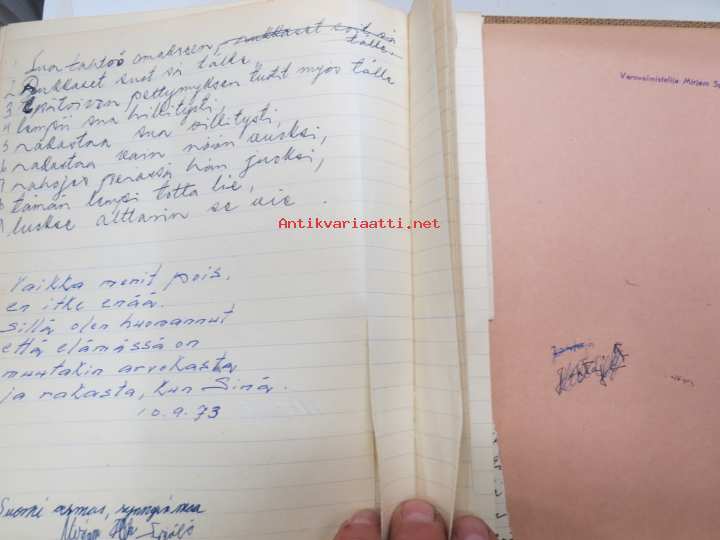 1 Sua tahtoo omakseen, rukkaset soit sä
tälle
2 Rukkaset suot sä tälle,
3 pettymyksen tuotit myös tälle
4 lempii sua hillitysti,
5 rakastaa sua villitysti,
6 rakastaa vain näön vuoksi,
7 rahojes perässä hän juoksi,
8 tämän lempi totta lie,
9 luokse alttarin se vie.
Vaikka menit pois,
en itke enää.
sillä olen huomannut
että elämässä on
muutakin arvokasta
ja rakasta, kun Sinä.
10.9.73
Suomi armas,
Antikvariaatti.net
Varavoimistelija Mirjam